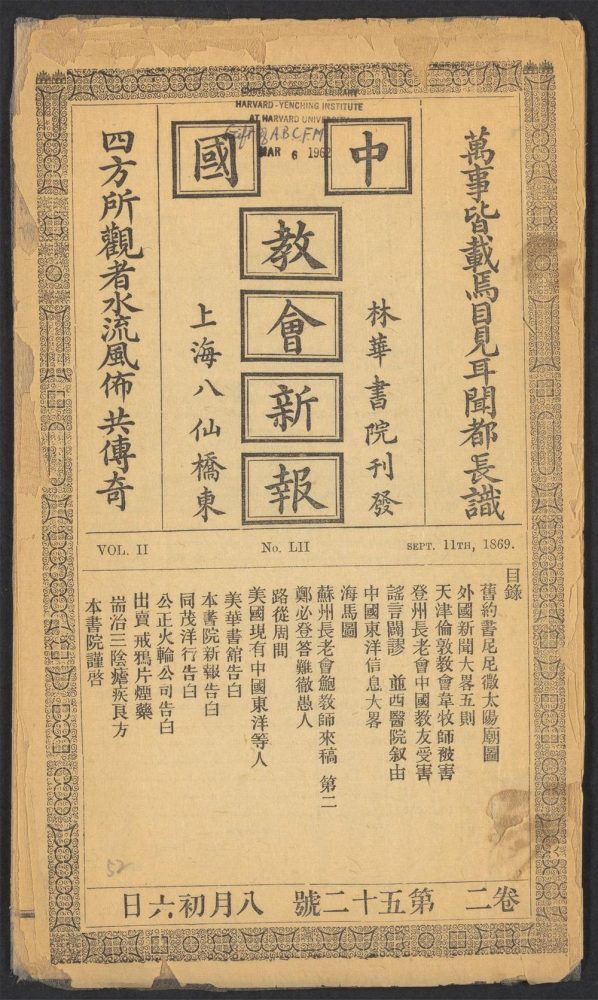 HARVARD-YENCHING INSTITUTE
AT HARVARD UNIVERSITY
Gift of ABCFM
MAR 6 1962
萬事皆載焉目見耳聞都長識
中國
教會新報
林華書院刊發
上海八仙橋東
四方所觀者水流風佈共傳奇
VOL. II No. LII SEPT. 11TH, 1869.
目錄
舊約書尼尼微太陽廟圖
外國新聞大畧五則
天津倫敦教會韋牧師被害
登州長老會中國教友受害
謠言闢謬 並西醫院叙由
中國東洋信息大畧
海馬圖
蘇州長老會鮑教師來稿 第二
鄭必登答難徹愚人
路從周問
美國現有中國東洋等人
美華書館告白
本書院新報告白
同茂洋行告白
公正火輪公司告白
出賣戒鴉片煙藥
耑治三陰瘧疾良方
本書院謹啓
52
卷二 第五十二號 八月初六日